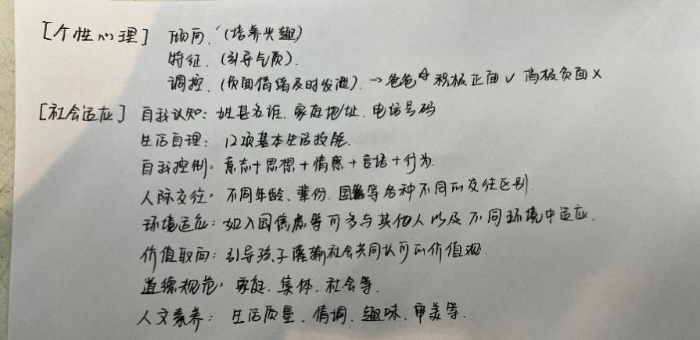 [个性心理] 倾向.(培养兴趣)
特征.(引导气质).
调控.(负面情绪及时发泄).→爸爸 积极正面√ 消极负面×
[社会适应] 自我认知:姓甚名谁.家庭地址.电话号码
生活自理:12项基本生活技能.
自我控制:意志+思想+情感+言语+行为.
人际交往:不同年龄、辈份、等各种不同的交往区别.
环境适应:如入园焦虑等可多与其他人以及不同环境中适应.
价值取向:引导孩子灌输社会共同认可的价值观.
道德规范:家庭.集体.社会等.
人文素养:生活质量、情调、趣味、审美等.